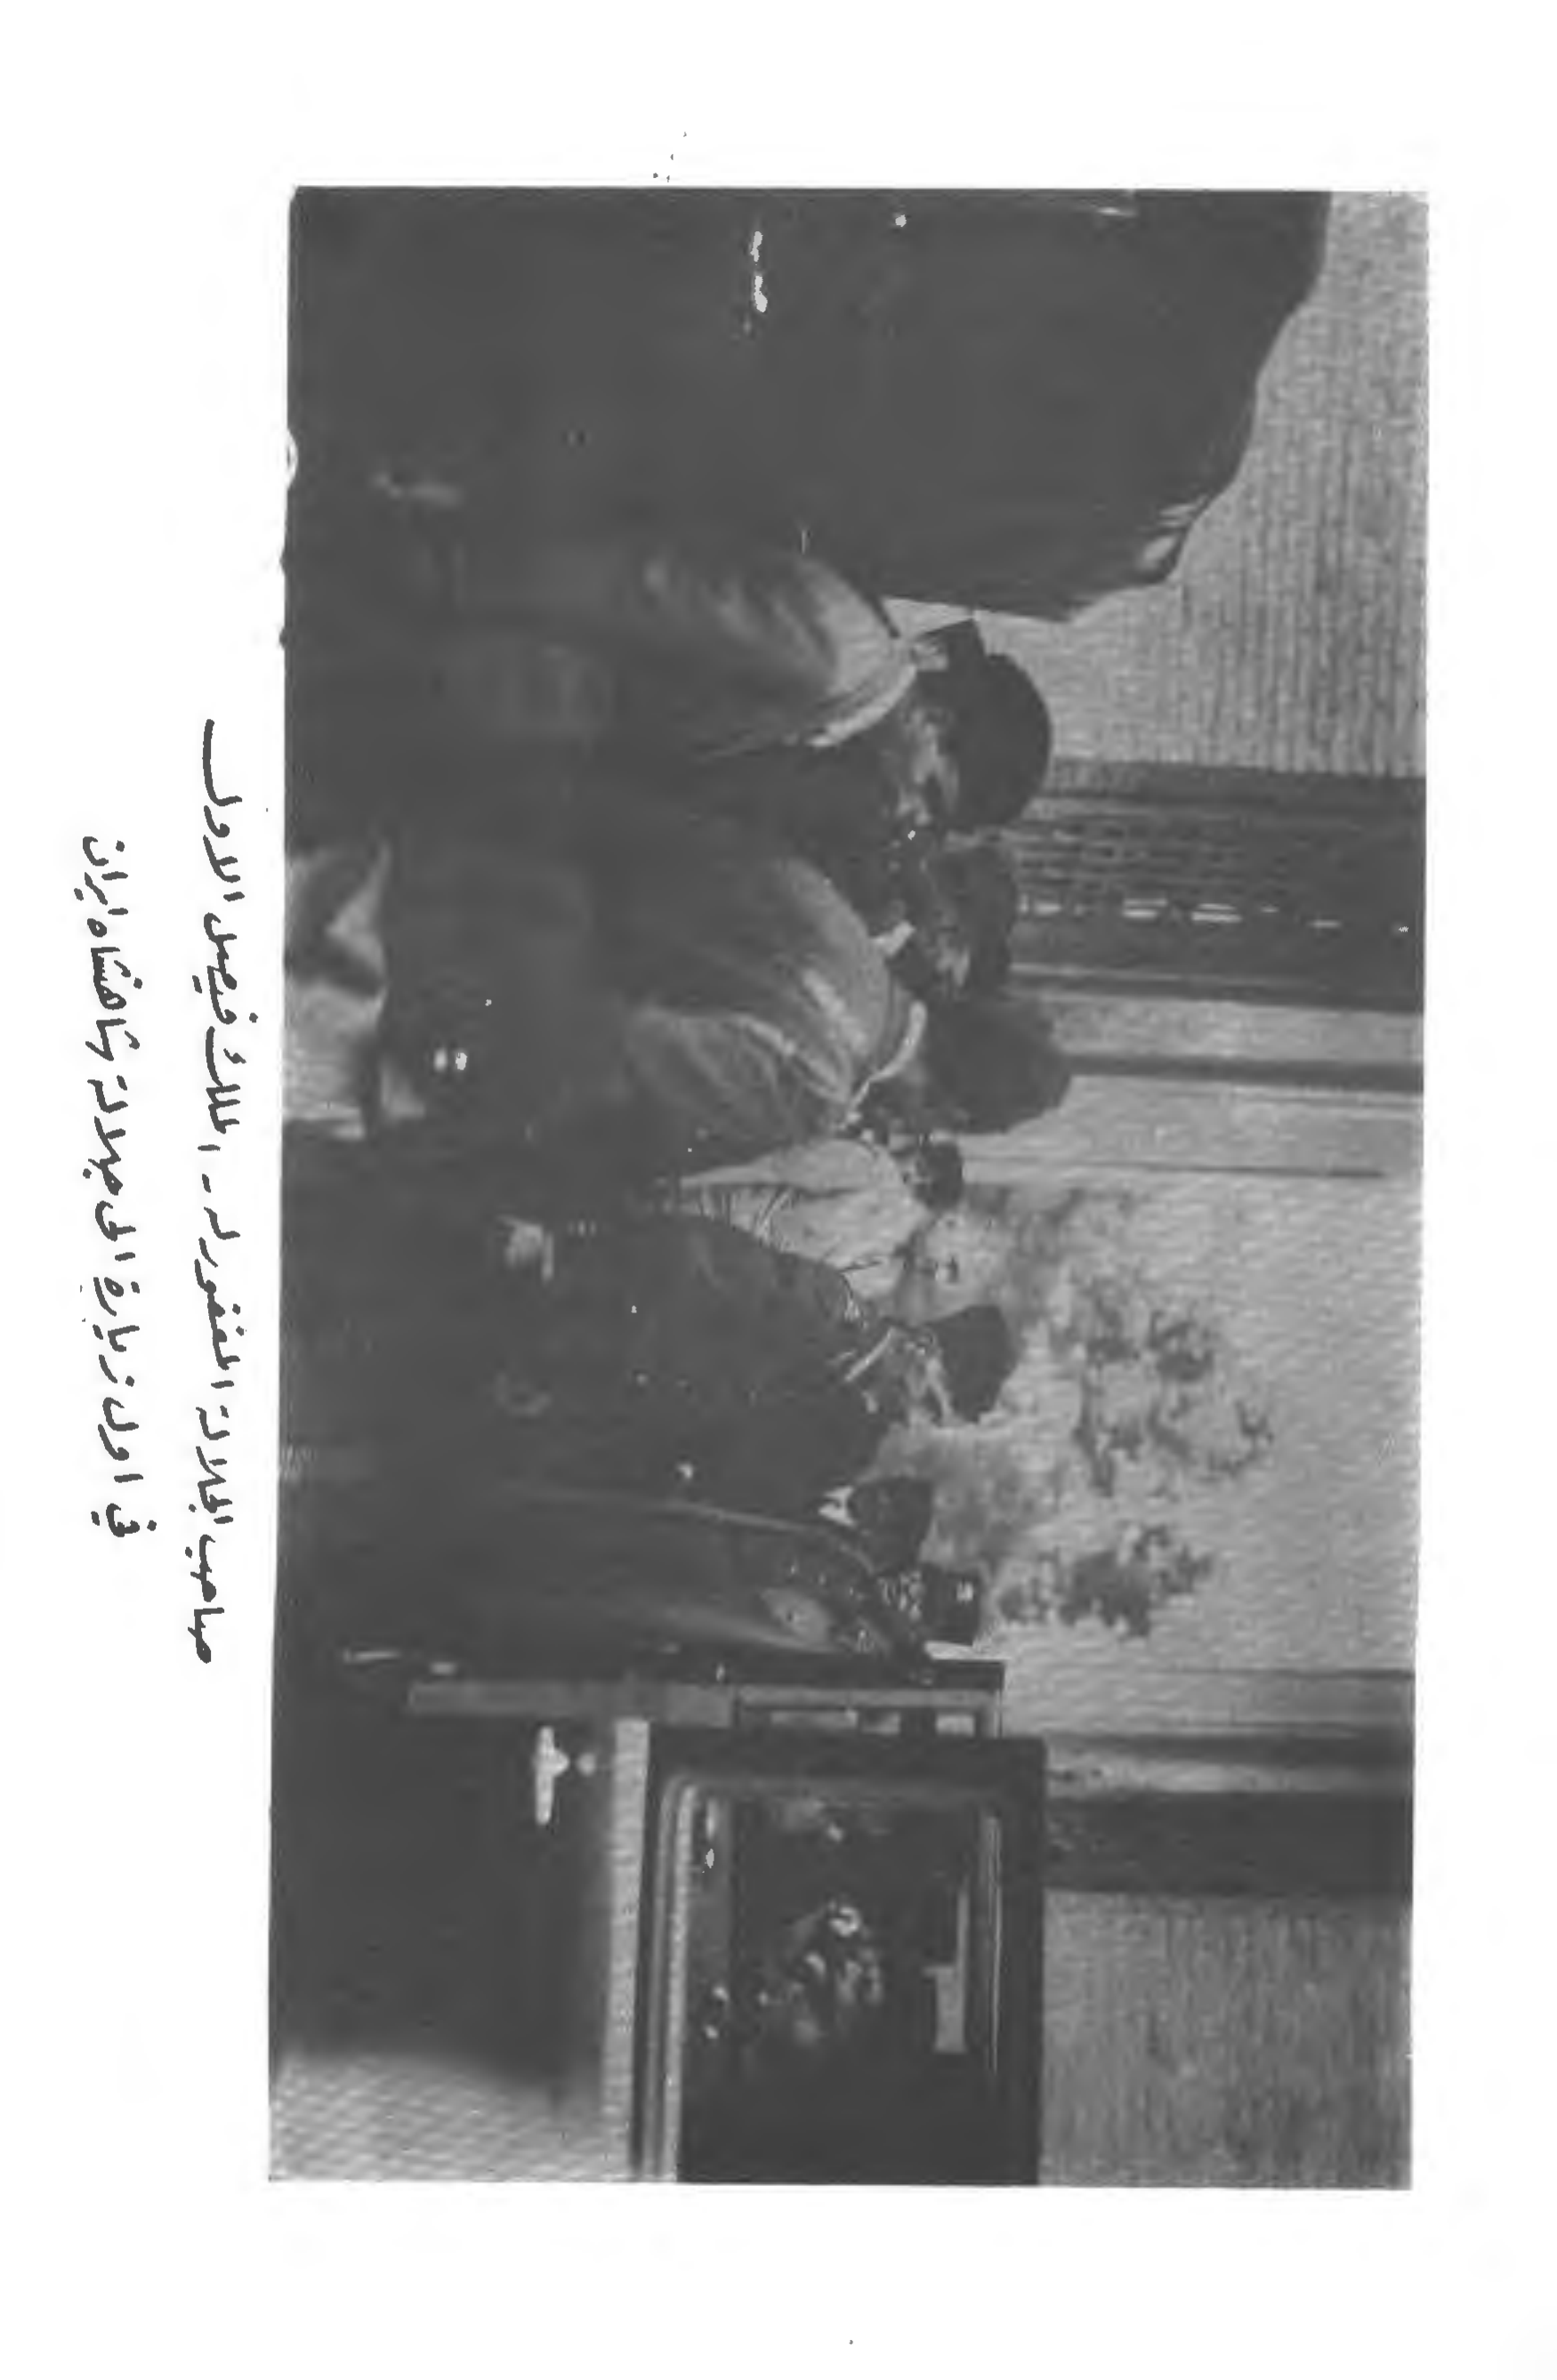 صاحب الجلالة المغفور له الملك فيصل الاول
في اول زيارة الى جلالة شاهنشاه ايران